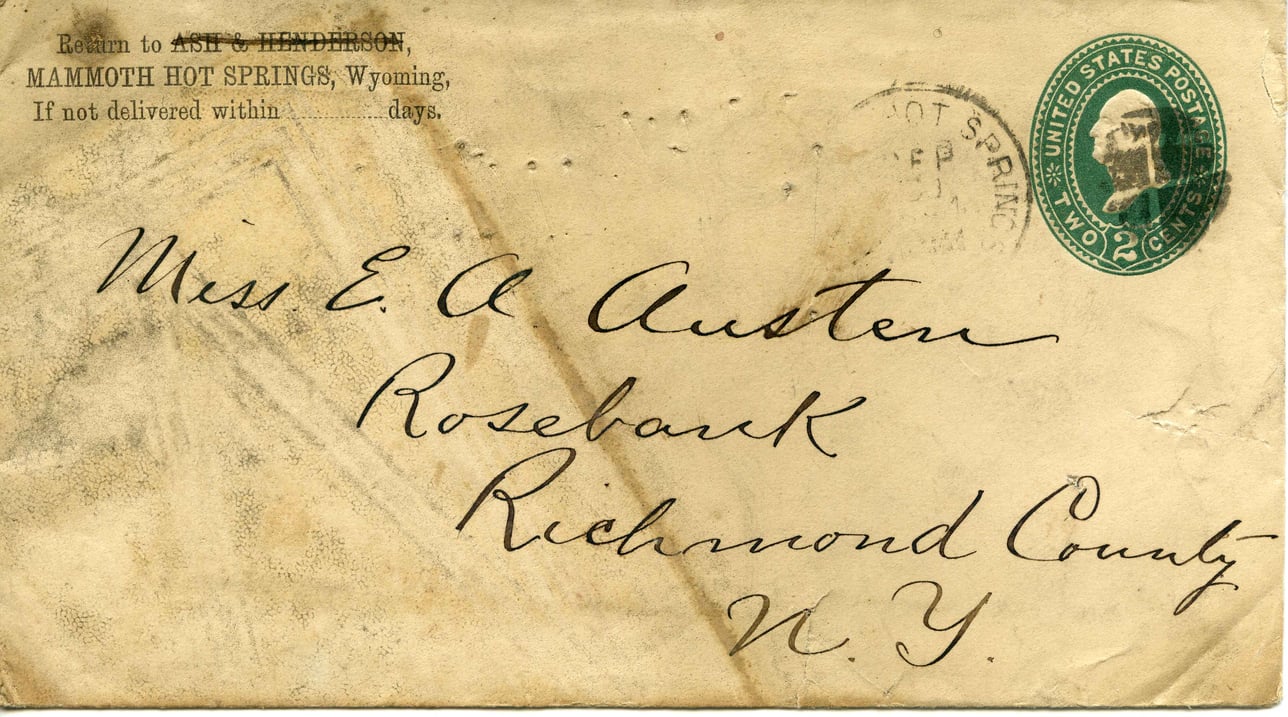 Return to ASH & HENDERSON,
MAMMOTH HOT SPRINGS, Wyoming,
If not delivered within ............ days.
HOT SPRINGS
SEP
UNITED STATES POSTAGE
TWO 2 CENTS
Miss. E. A. Austen
Rosebank
Richmond County
N. Y.